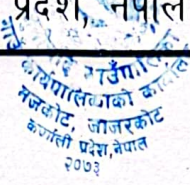 प्रदेश, नेपाल
गाउँपालिका
कार्यपालिकाको कार्यालय
मजकोट, जाजरकोट
कर्णाली प्रदेश, नेपाल
२०७३